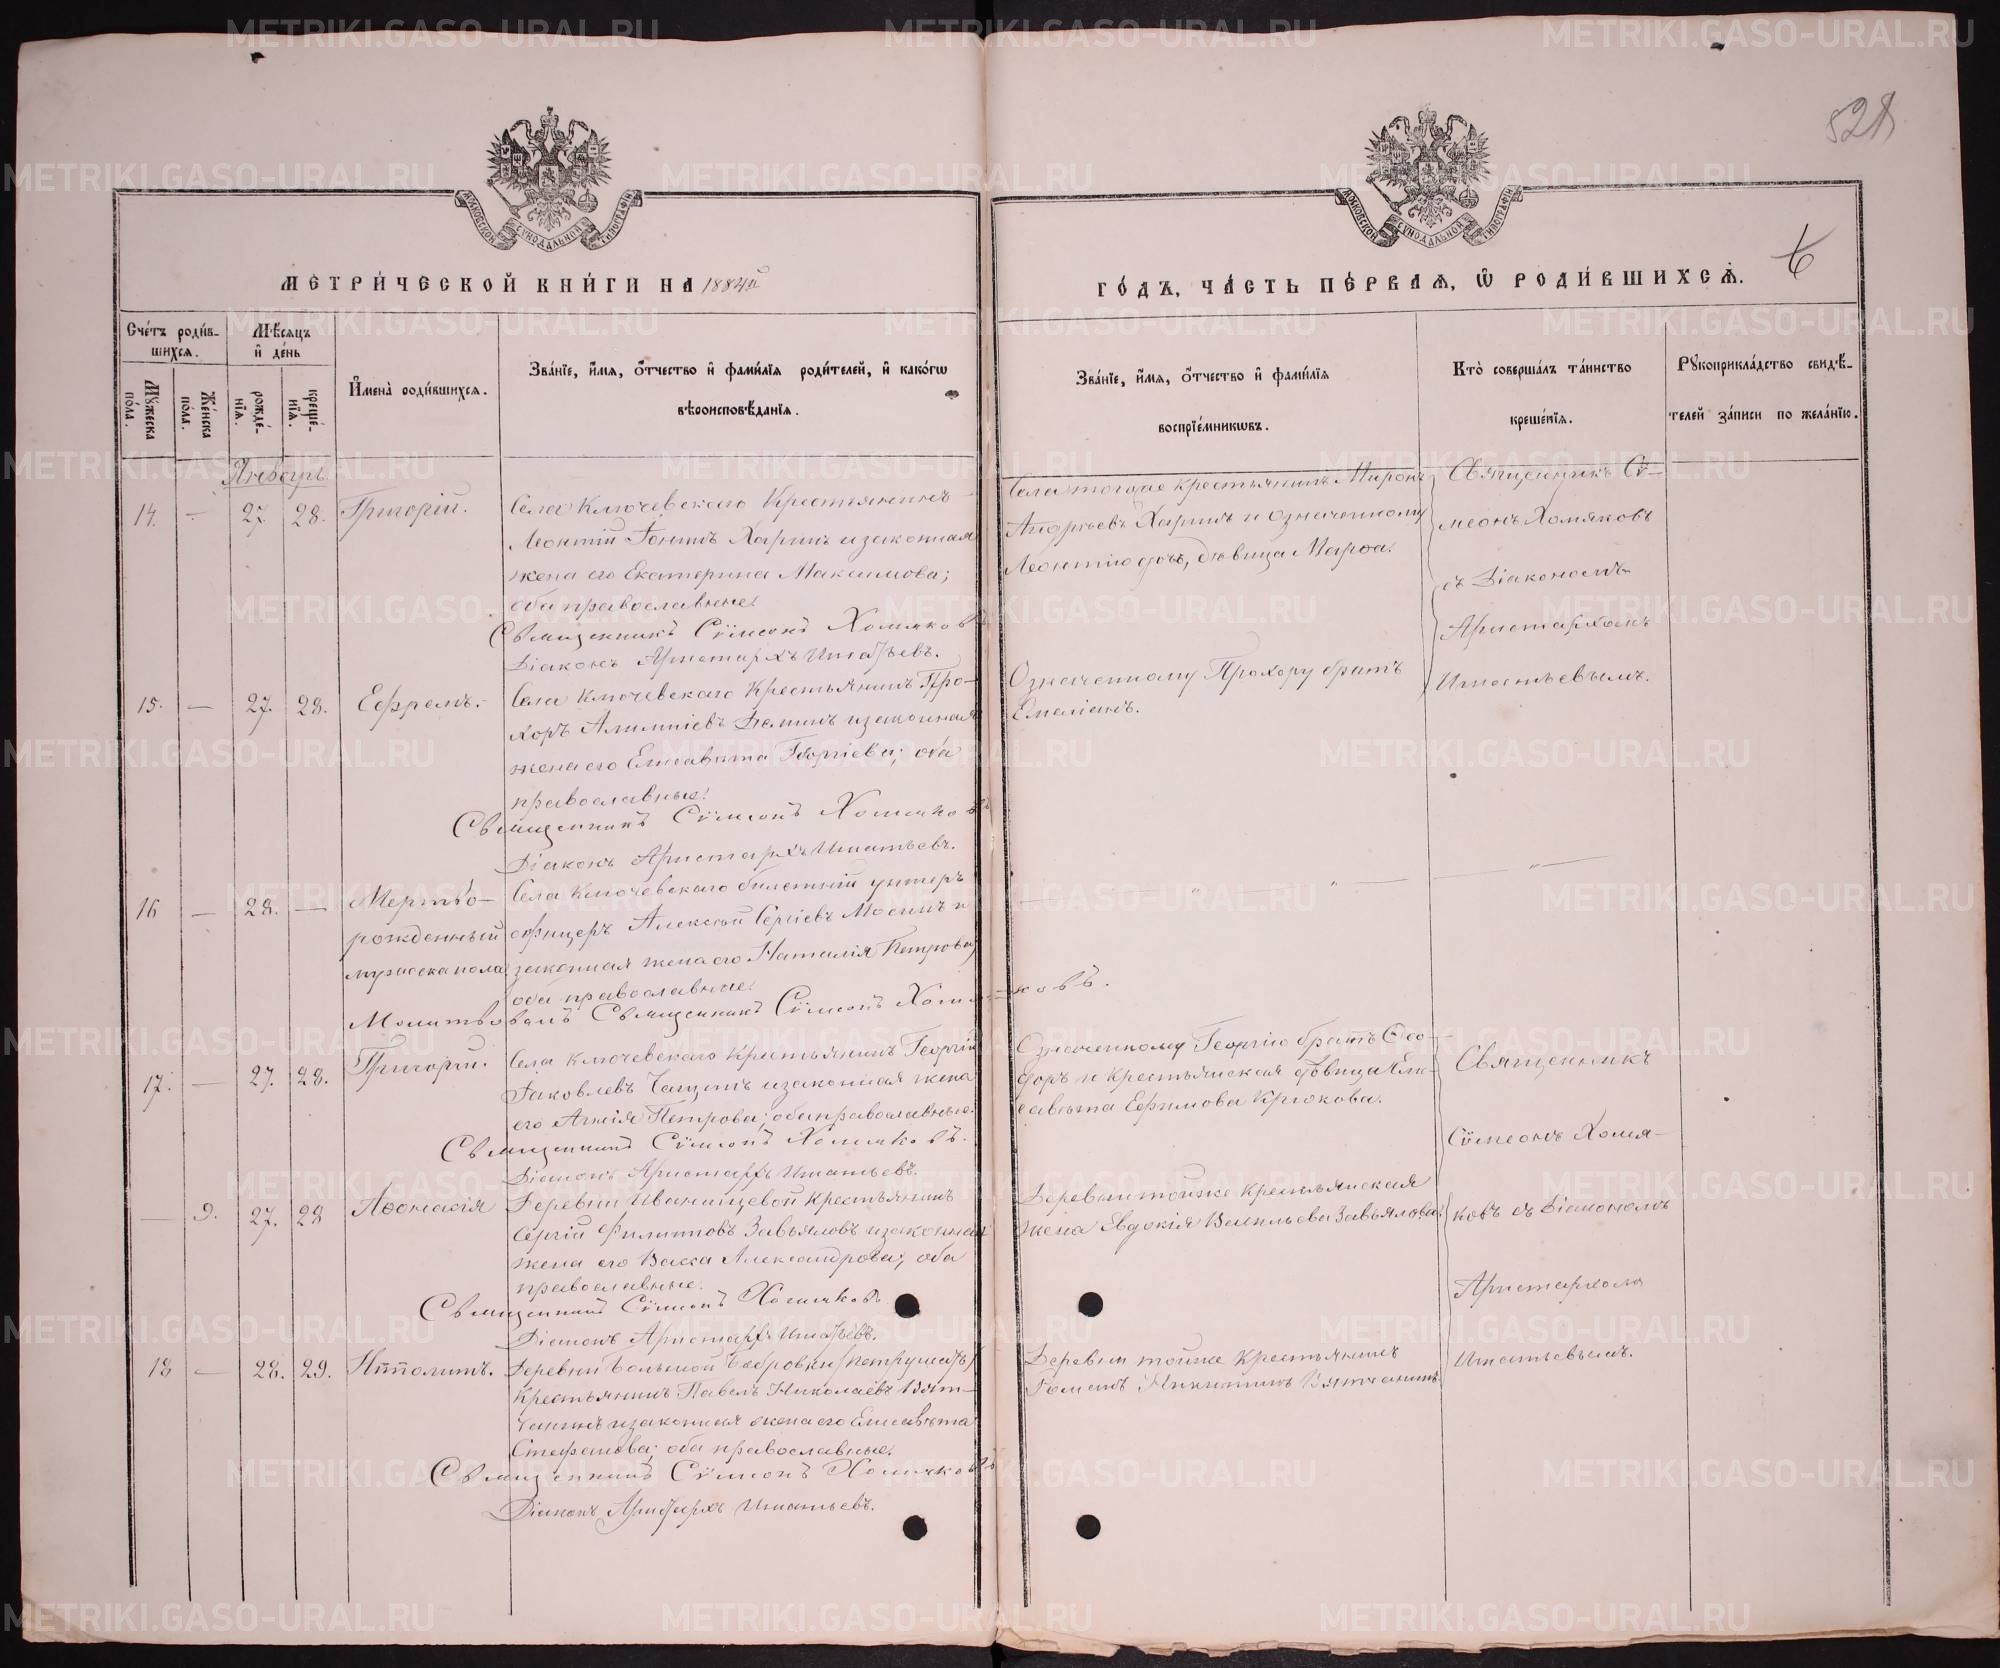 528
6
МОСКОВСКОЙ СѴНОДАЛЬНОЙ ТИПОГРАФІИ
МОСКОВСКОЙ СѴНОДАЛЬНОЙ ТИПОГРАФІИ
МЕТРИ́ЧЕСКОЙ КНИ́ГИ НА 1884й
ГО́ДЪ, ЧА́СТЬ ПЕ́РВАѦ, Ѡ҆ РОДИ́ВШИХСѦ.
Счетъ роди́в-
шихсѧ.
Мѣ́сѧцъ
и҆ де́нь
Мꙋ́жеска по́ла.
Же́нска по́ла.
рожде́-
нїѧ.
креще́-
нїѧ.
И҆мена̀ роди́вшихсѧ.
Зва́нїе, и҆́мѧ, ѻ҆́тчество и҆ фами́лїѧ роди́телей, и҆ како́гѡ
вѣроисповѣ́данїѧ.
Зва́нїе, и҆́мѧ, ѻ҆́тчество и҆ фами́лїѧ
воспрїе́мникѡвъ.
Кто̀ соверша́лъ та́инство
креще́нїѧ.
Рꙋкоприкла́дство свидѣ́-
телей за́писи по жела́нїю.
Январь.
14. — 27. 28. Григорій.
Села Ключевскаго Крестьянинъ
Леонтій Харинъ и законная
жена его Екатерина Максимова;
оба православные.
Священникъ Сѵмеонъ Хомяковъ
Діаконъ Аристархъ Игнатьевъ.
Села тогоже крестьянинъ Миронъ
Андреевъ Харинъ и означенному
Леонтію дочь, дѣвица Марѳа.
Священникъ Сѵ-
меонъ Хомяковъ
съ Діакономъ
Аристархомъ
Игнатьевымъ.
15. — 27. 28. Ефремъ.
Села Ключевскаго Крестьянинъ Про-
хоръ Алимпіевъ Деминъ и законная
жена его Елисавета Георгіева; оба
православные.
Священникъ Сѵмеонъ Хомяковъ
Діаконъ Аристархъ Игнатьевъ.
Означенному Прохору братъ
Емеліанъ.
16 — 28. — Мертво-
рожденный
мужеска пола
Села Ключевскаго билетный унтеръ
офицеръ Алексѣй Сергіевъ Мосинъ и
законная жена его Наталія Петрова;
оба православные.
Молитвовалъ Священникъ Сѵмеонъ Хомя-
ковъ.
17. — 27. 28. Григорій.
Села Ключевскаго Крестьянинъ Георгій
Іаковлевъ и законная жена
его Агнія Петрова; оба православные.
Священникъ Сѵмеонъ Хомяковъ.
Діаконъ Аристархъ Игнатьевъ.
Означенному Георгію братъ Ѳео-
доръ и Крестьянская дѣвица Ели-
савета Ефимова Крюкова.
Священникъ
Сѵмеонъ Хомя-
ковъ съ Діакономъ
Аристархомъ
Игнатьевымъ.
— 9. 27. 28 Аѳонасія
Деревни Иванищевой Крестьянинъ
Сергій Филиповъ Завьяловъ и законная
жена его Васса Александрова; оба
православные.
Священникъ Сѵмеонъ Хомяковъ
Діаконъ Аристархъ Игнатьевъ.
Деревни тойже Крестьянская
жена Евдокія Васильева Завьялова.
18 — 28. 29. Ипполитъ.
Деревни Большой Бобровки
Крестьянинъ Павелъ Николаевъ Вят-
чанинъ и законная жена его Елисавета
Стефанова; оба православные.
Священникъ Сѵмеонъ Хомяковъ
Діаконъ Аристархъ Игнатьевъ.
Деревни тойже Крестьянинъ
Никитинъ Вятчанинъ.
METRIKI.GASO-URAL.RU